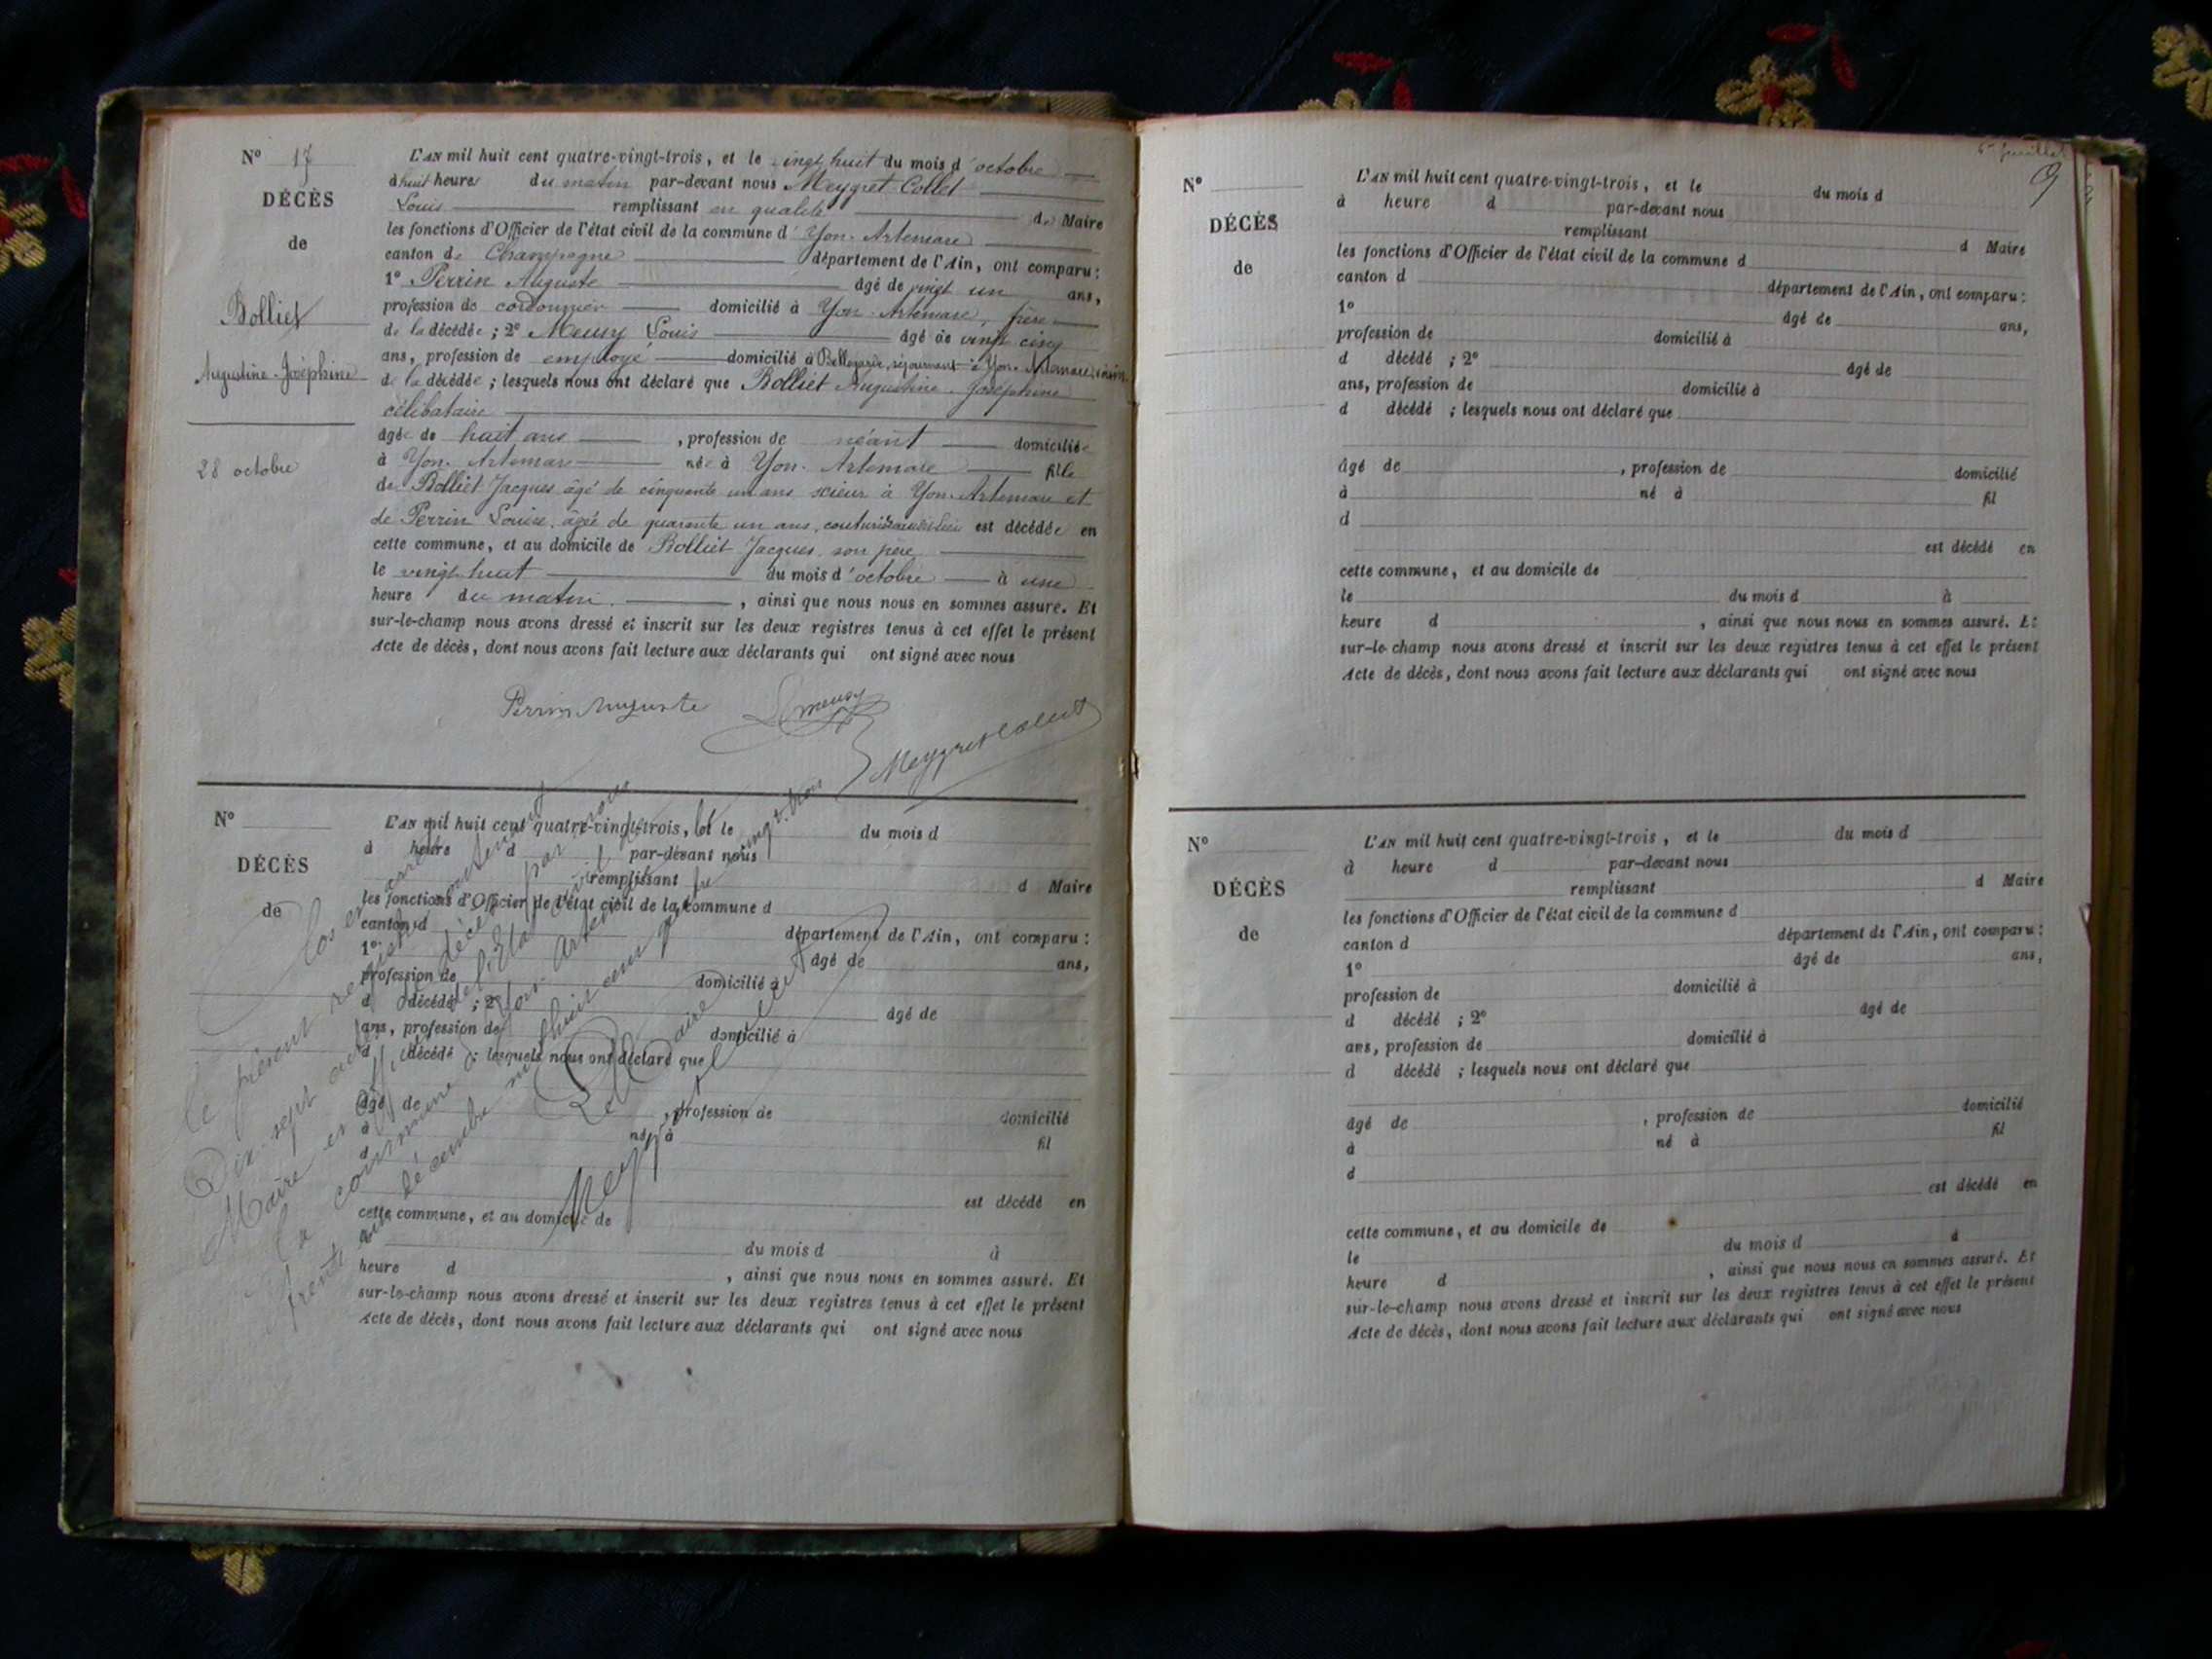 N° 17
DÉCÈS
de
Bolliet
Augustine-Joséphine
28 octobre
L'AN mil huit cent quatre-vingt-trois, et le vingt huit du mois d'octobre
à huit heures du matin par-devant nous Meygret Collet
Louis remplissant en qualité de Maire
les fonctions d'Officier de l'état civil de la commune d'Yon-Artemare
canton de Champagne département de l'Ain, ont comparu :
1° Perrin Auguste âgé de vingt un ans,
profession de cordonnier domicilié à Yon-Artemare, frère
de la décédée ; 2° Meusy Louis âgé de vingt cinq
ans, profession de employé domicilié à Bellegarde, séjournant à Yon-Artemare, voisin
de la décédée ; lesquels nous ont déclaré que Bolliet Augustine-Joséphine
célibataire
âgée de huit ans, profession de néant domiciliée
à Yon-Artemare née à Yon-Artemare fille
de Bolliet Jacques âgé de cinquante un ans scieur à Yon-Artemare et
de Perrin Louise, âgée de quarante un ans, couturière est décédée en
cette commune, et au domicile de Bolliet Jacques, son père
le vingt huit du mois d'octobre à une
heure du matin, ainsi que nous nous en sommes assuré. Et
sur-le-champ nous avons dressé et inscrit sur les deux registres tenus à cet effet le présent
Acte de décès, dont nous avons fait lecture aux déclarants qui ont signé avec nous
Perrin Auguste
LMeusy
Meygret Collet
N°
DÉCÈS
de
L'AN mil huit cent quatre-vingt-trois, et le du mois d
à heure d par-devant nous
remplissant d Maire
les fonctions d'Officier de l'état civil de la commune d
canton d département de l'Ain, ont comparu :
1° âgé de ans,
profession de domicilié à
d décédé ; 2° âgé de
ans, profession de domicilié à
d décédé ; lesquels nous ont déclaré que
âgé de , profession de domicilié
à né à fil
d
est décédé en
cette commune, et au domicile de
du mois d à
heure d , ainsi que nous nous en sommes assuré. Et
sur-le-champ nous avons dressé et inscrit sur les deux registres tenus à cet effet le présent
Acte de décès, dont nous avons fait lecture aux déclarants qui ont signé avec nous
Clos et arrêté
le présent registre contenant
Dix-sept actes de décès par nous
Maire et officier de l'état civil de
la commune d'Yon-Artemare le
trente un décembre mil huit cent quatre vingt-trois
Le Maire
Meygret Collet
6e feuillet
9
N°
DÉCÈS
de
L'AN mil huit cent quatre-vingt-trois, et le du mois d
à heure d par-devant nous
remplissant d Maire
les fonctions d'Officier de l'état civil de la commune d
canton d département de l'Ain, ont comparu :
1° âgé de ans,
profession de domicilié à
d décédé ; 2° âgé de
ans, profession de domicilié à
d décédé ; lesquels nous ont déclaré que
âgé de , profession de domicilié
à né à fil
d
est décédé en
cette commune, et au domicile de
le du mois d à
heure d , ainsi que nous nous en sommes assuré. Et
sur-le-champ nous avons dressé et inscrit sur les deux registres tenus à cet effet le présent
Acte de décès, dont nous avons fait lecture aux déclarants qui ont signé avec nous
N°
DÉCÈS
de
L'AN mil huit cent quatre-vingt-trois, et le du mois d
à heure d par-devant nous
remplissant d Maire
les fonctions d'Officier de l'état civil de la commune d
canton d département de l'Ain, ont comparu :
1° âgé de ans,
profession de domicilié à
d décédé ; 2° âgé de
ans, profession de domicilié à
d décédé ; lesquels nous ont déclaré que
âgé de , profession de domicilié
à né à fil
d
est décédé en
cette commune, et au domicile de
le du mois d à
heure d , ainsi que nous nous en sommes assuré. Et
sur-le-champ nous avons dressé et inscrit sur les deux registres tenus à cet effet le présent
Acte de décès, dont nous avons fait lecture aux déclarants qui ont signé avec nous